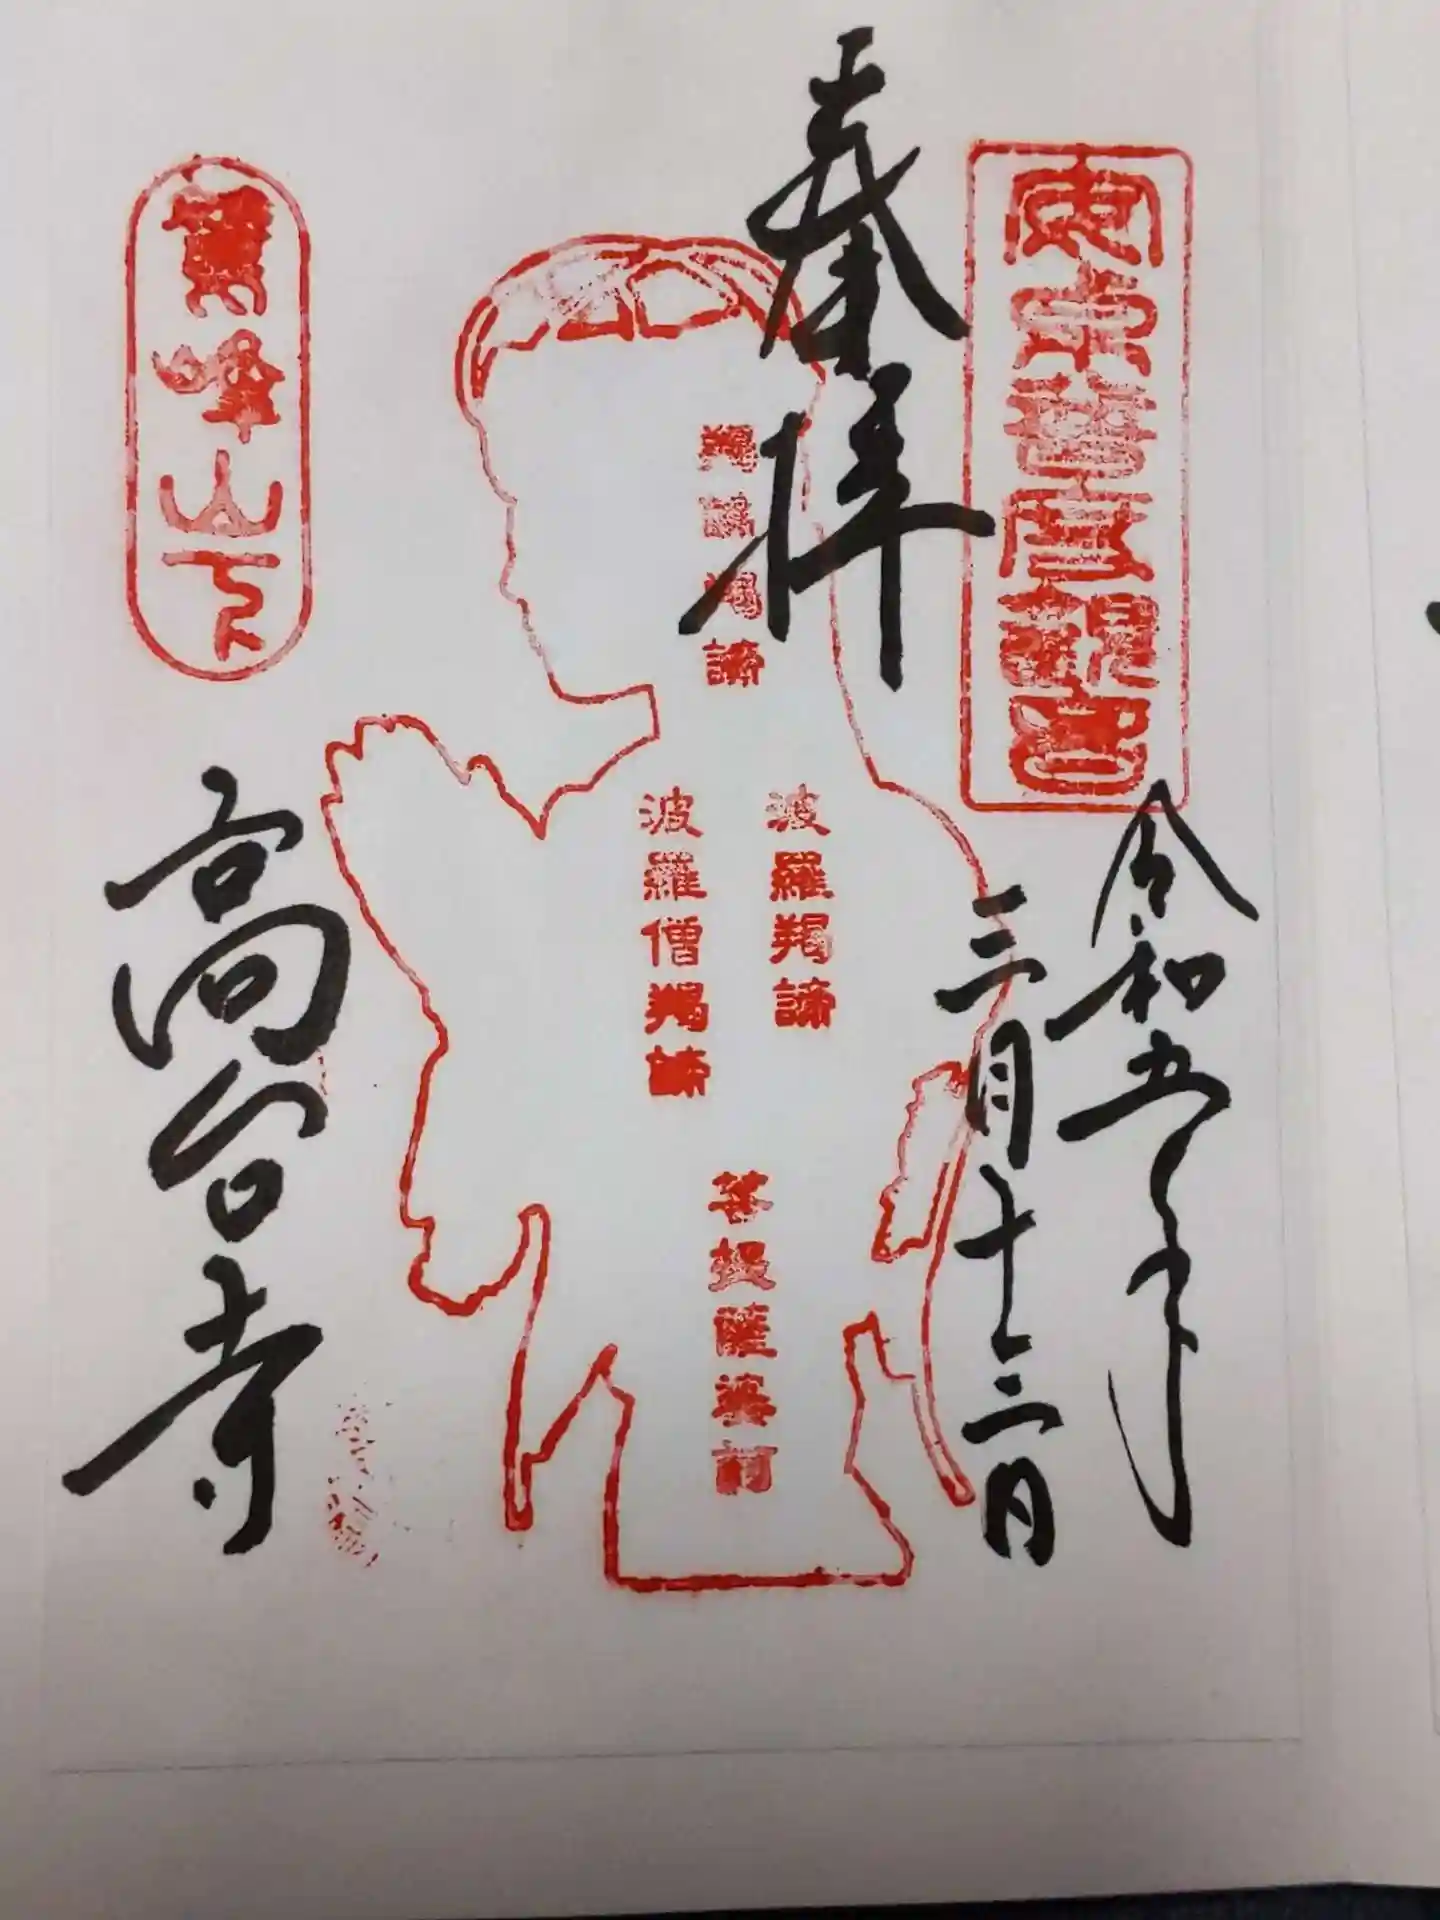 奉拝
観音
令和五年
三月十三日
羯諦羯諦
波羅羯諦
波羅僧羯諦
菩提薩婆訶
鷲峰山下
高台寺